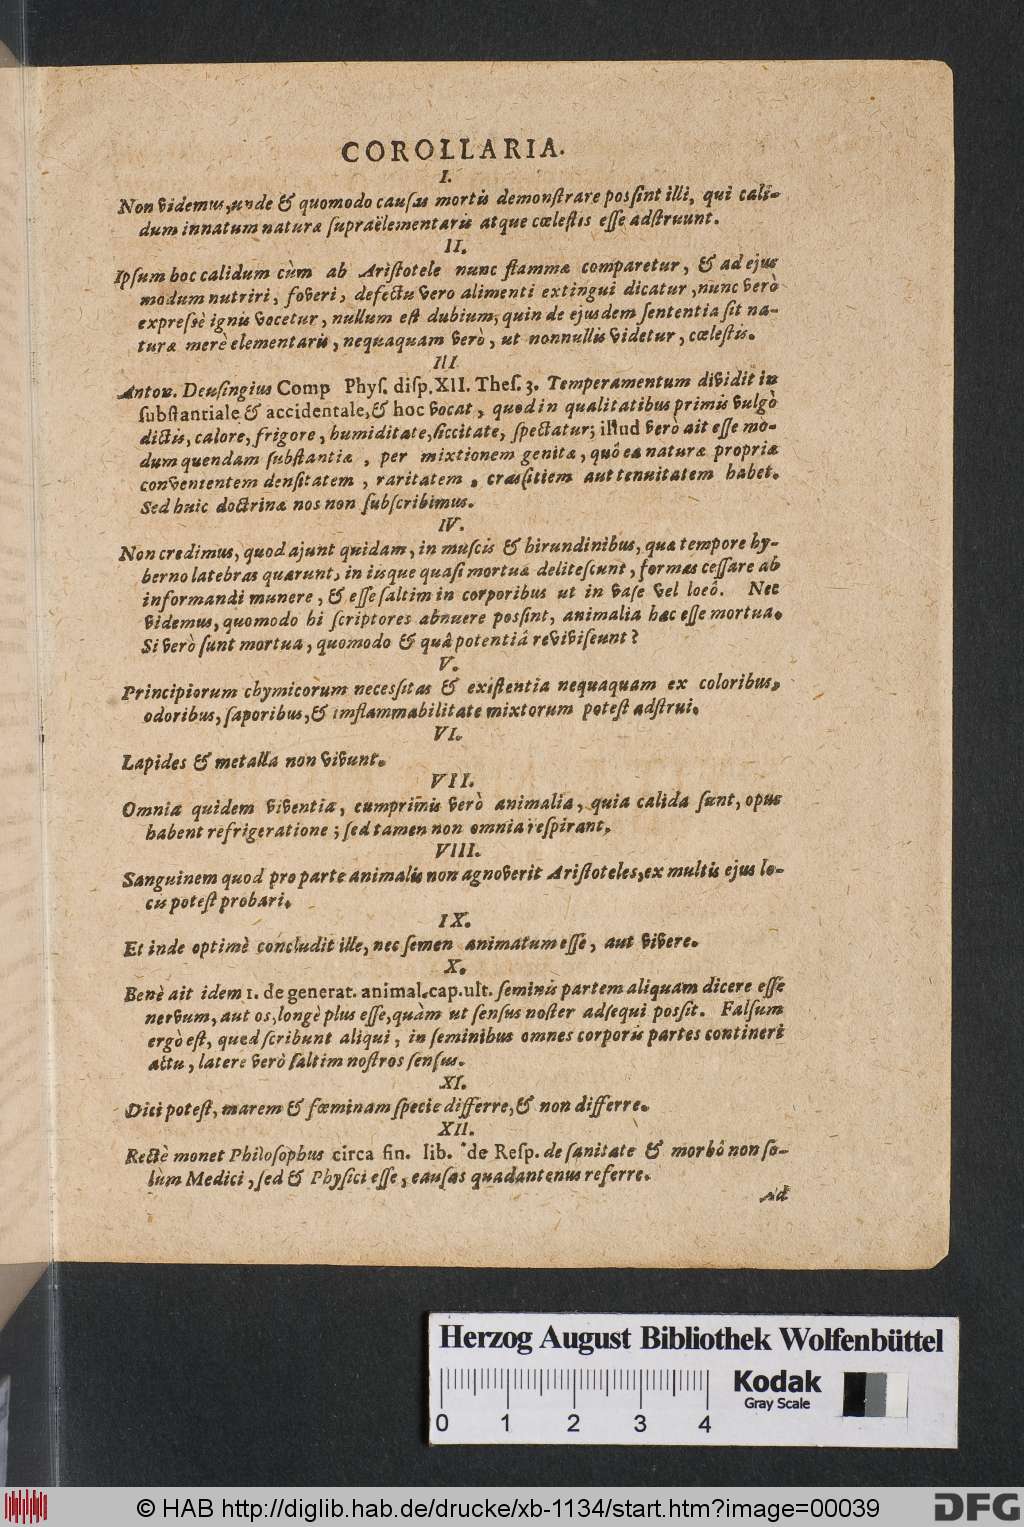 COROLLARIA.
I.
Non videmus, unde & quomodo causas mortis demonstrare possint illi, qui cali-
dum innatum naturæ supraëlementaris atque cœlestis esse adstruunt.
II.
Ipsum hoc calidum cùm ab Aristotele nunc flammæ comparetur, & ad ejus
modum nutriri, foveri, defectu vero alimenti extingui dicatur, nunc verò
expressè ignis vocetur, nullum est dubium, quin de ejusdem sententia sit na-
turæ merè elementaris, nequaquam verò, ut nonnullis videtur, cœlestis.
III
Anton. Deusingius Comp Phys. disp. XII. Thes. 3. Temperamentum dividit in
substantiale & accidentale, & hoc vocat, quod in qualitatibus primis vulgò
dictis, calore, frigore, humiditate, siccitate, spectatur; illud verò ait esse mo-
dum quendam substantiæ, per mixtionem genitæ, quô ea naturæ propriæ
convenientem densitatem, raritatem, crassitiem aut tenuitatem habet.
Sed huic doctrinæ nos non subscribimus.
IV.
Non credimus, quod ajunt quidam, in muscis & hirundinibus, quæ tempore hy-
berno latebras quærunt, in iisque quasi mortuæ delitescunt, formas cessare ab
informandi munere, & esse saltim in corporibus ut in vase vel locô. Nec
videmus, quomodo hi scriptores abnuere possint, animalia hæc esse mortua.
Si verò sunt mortua, quomodo & quâ potentiâ reviviscunt?
V.
Principiorum chymicorum necessitas & existentia nequaquam ex coloribus,
odoribus, saporibus, & inflammabilitate mixtorum potest adstrui.
VI.
Lapides & metalla non vivunt.
VII.
Omnia quidem viventia, cumprimis verò animalia, quia calida sunt, opus
habent refrigeratione; sed tamen non omnia respirant.
VIII.
Sanguinem quod pro parte animalis non agnoverit Aristoteles, ex multis ejus lo-
cis potest probari.
IX.
Et inde optimè concludit ille, nec semen animatum esse, aut vivere.
X.
Benè ait idem 1. de generat. animal. cap. ult. seminis partem aliquam dicere esse
nervum, aut os, longè plus esse, quàm ut sensus noster adsequi possit. Falsum
ergò est, quod scribunt aliqui, in seminibus omnes corporis partes contineri
actu, latere verò saltim nostros sensus.
XI.
Dici potest, marem & fœminam specie differre, & non differre.
XII.
Rectè monet Philosophus circa fin. lib. de Resp. de sanitate & morbô non so-
lùm Medici, sed & Physici esse, causas quadantenus referre.
Ad
Herzog August Bibliothek Wolfenbüttel
0 1 2 3 4
Kodak
Gray Scale
© HAB http://diglib.hab.de/drucke/xb-1134/start.htm?image=00039
DFG